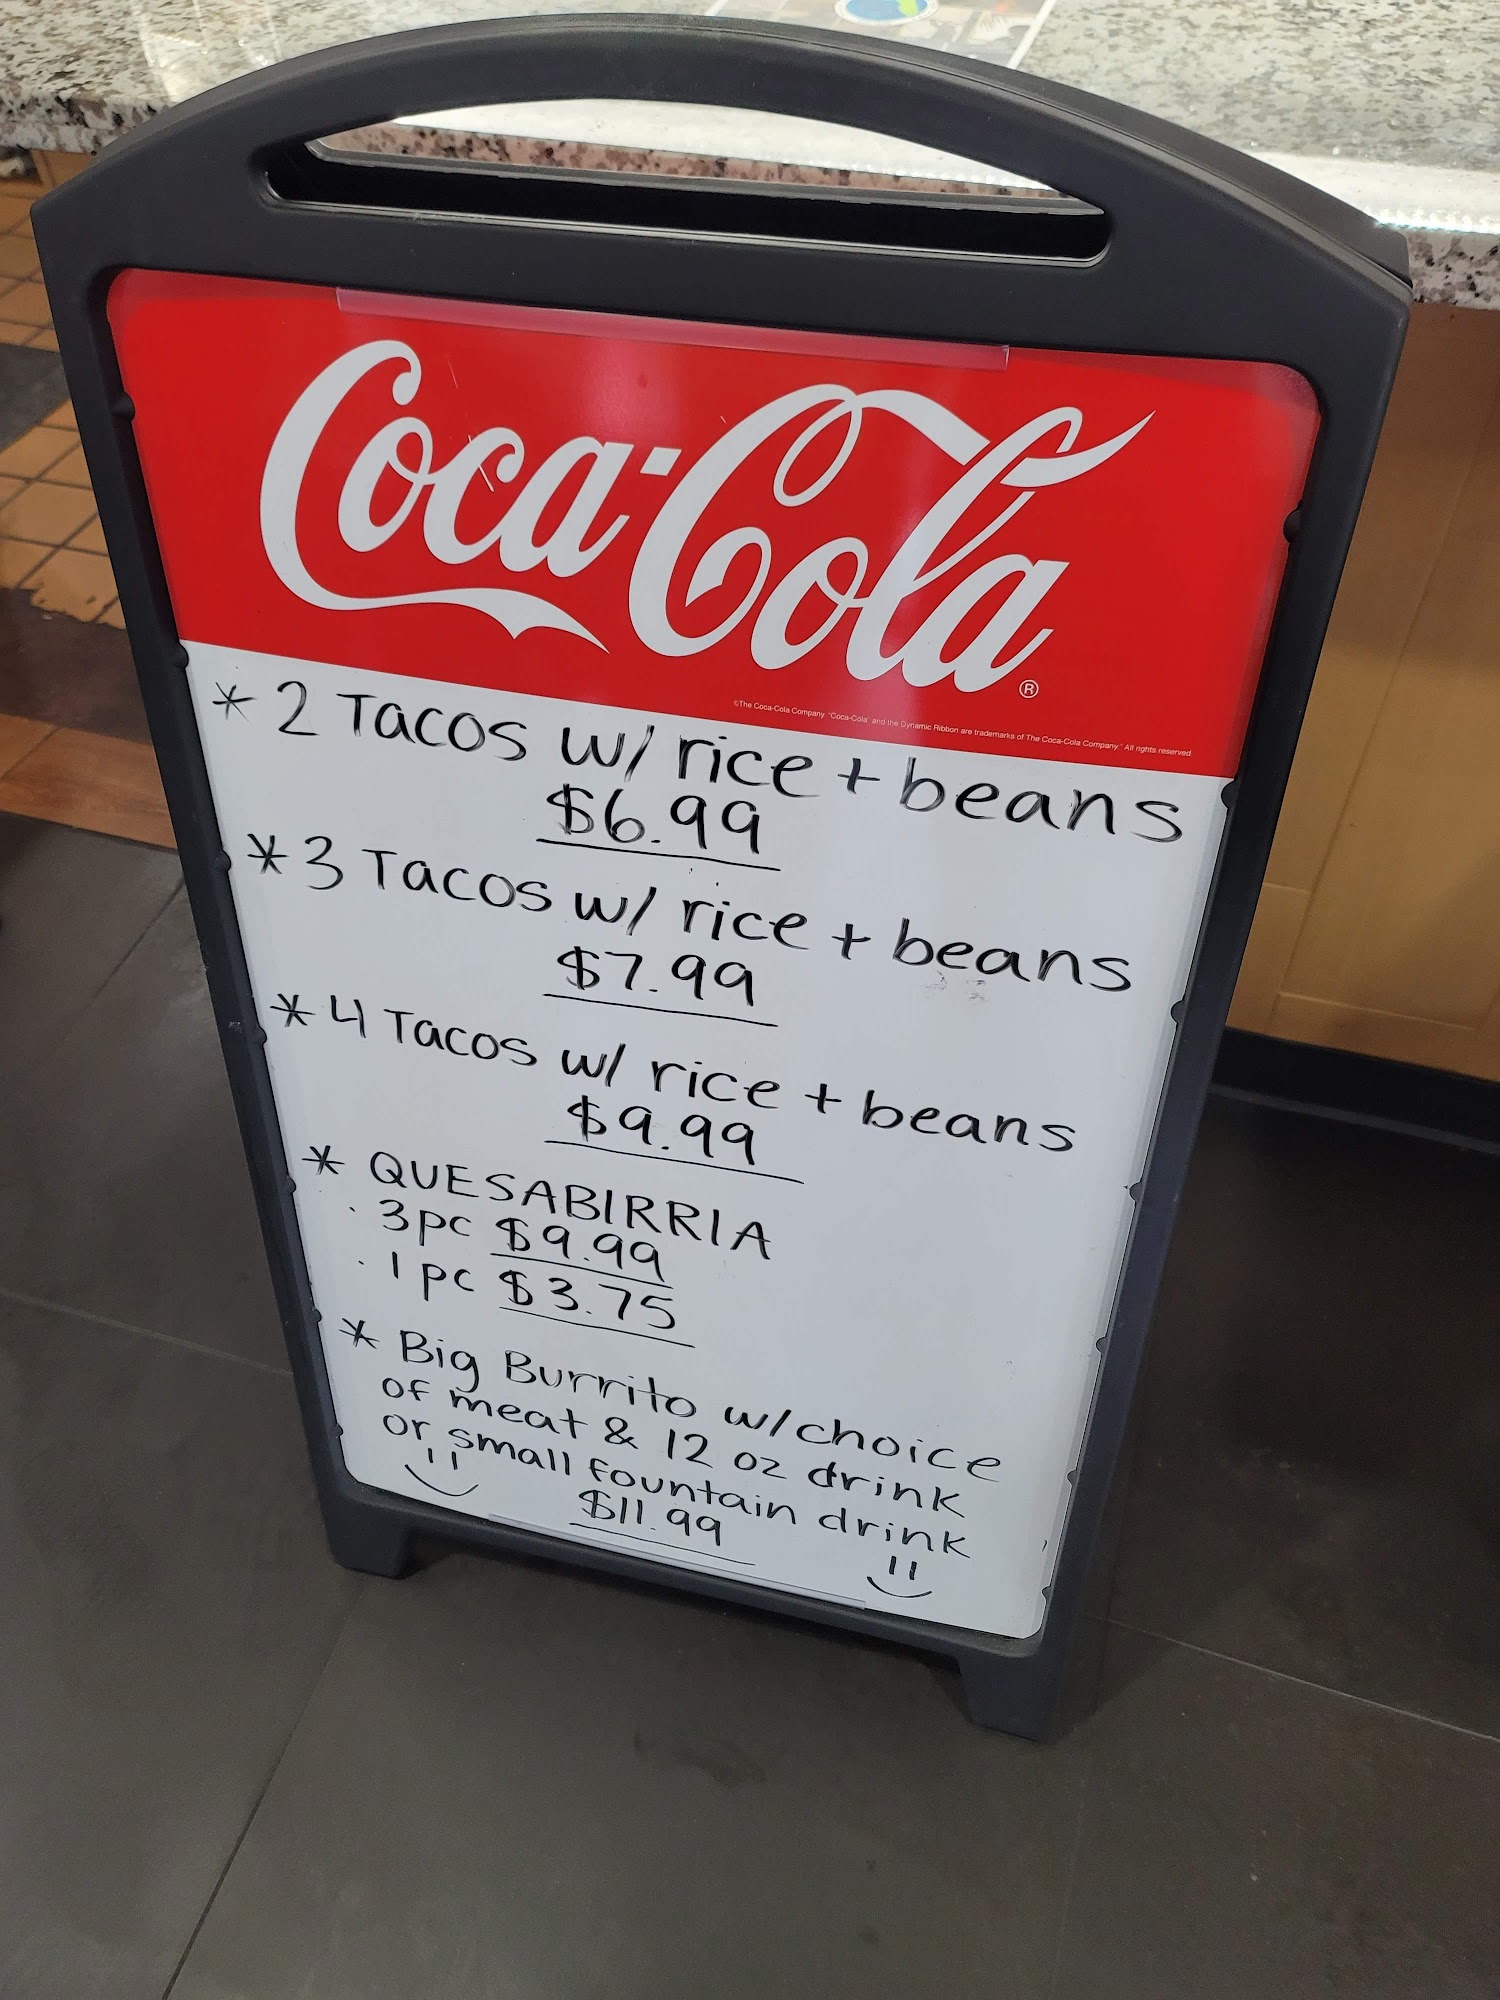 Coca-Cola
®
©The Coca-Cola Company. "Coca-Cola" and the Dynamic Ribbon are trademarks of The Coca-Cola Company. All rights reserved.
* 2 Tacos w/ rice + beans
$6.99
* 3 Tacos w/ rice + beans
$7.99
* 4 Tacos w/ rice + beans
$9.99
* QUESABIRRIA
· 3pc $9.99
· 1 pc $3.75
* Big Burrito w/choice
of meat & 12 oz drink
or small fountain drink
$11.99